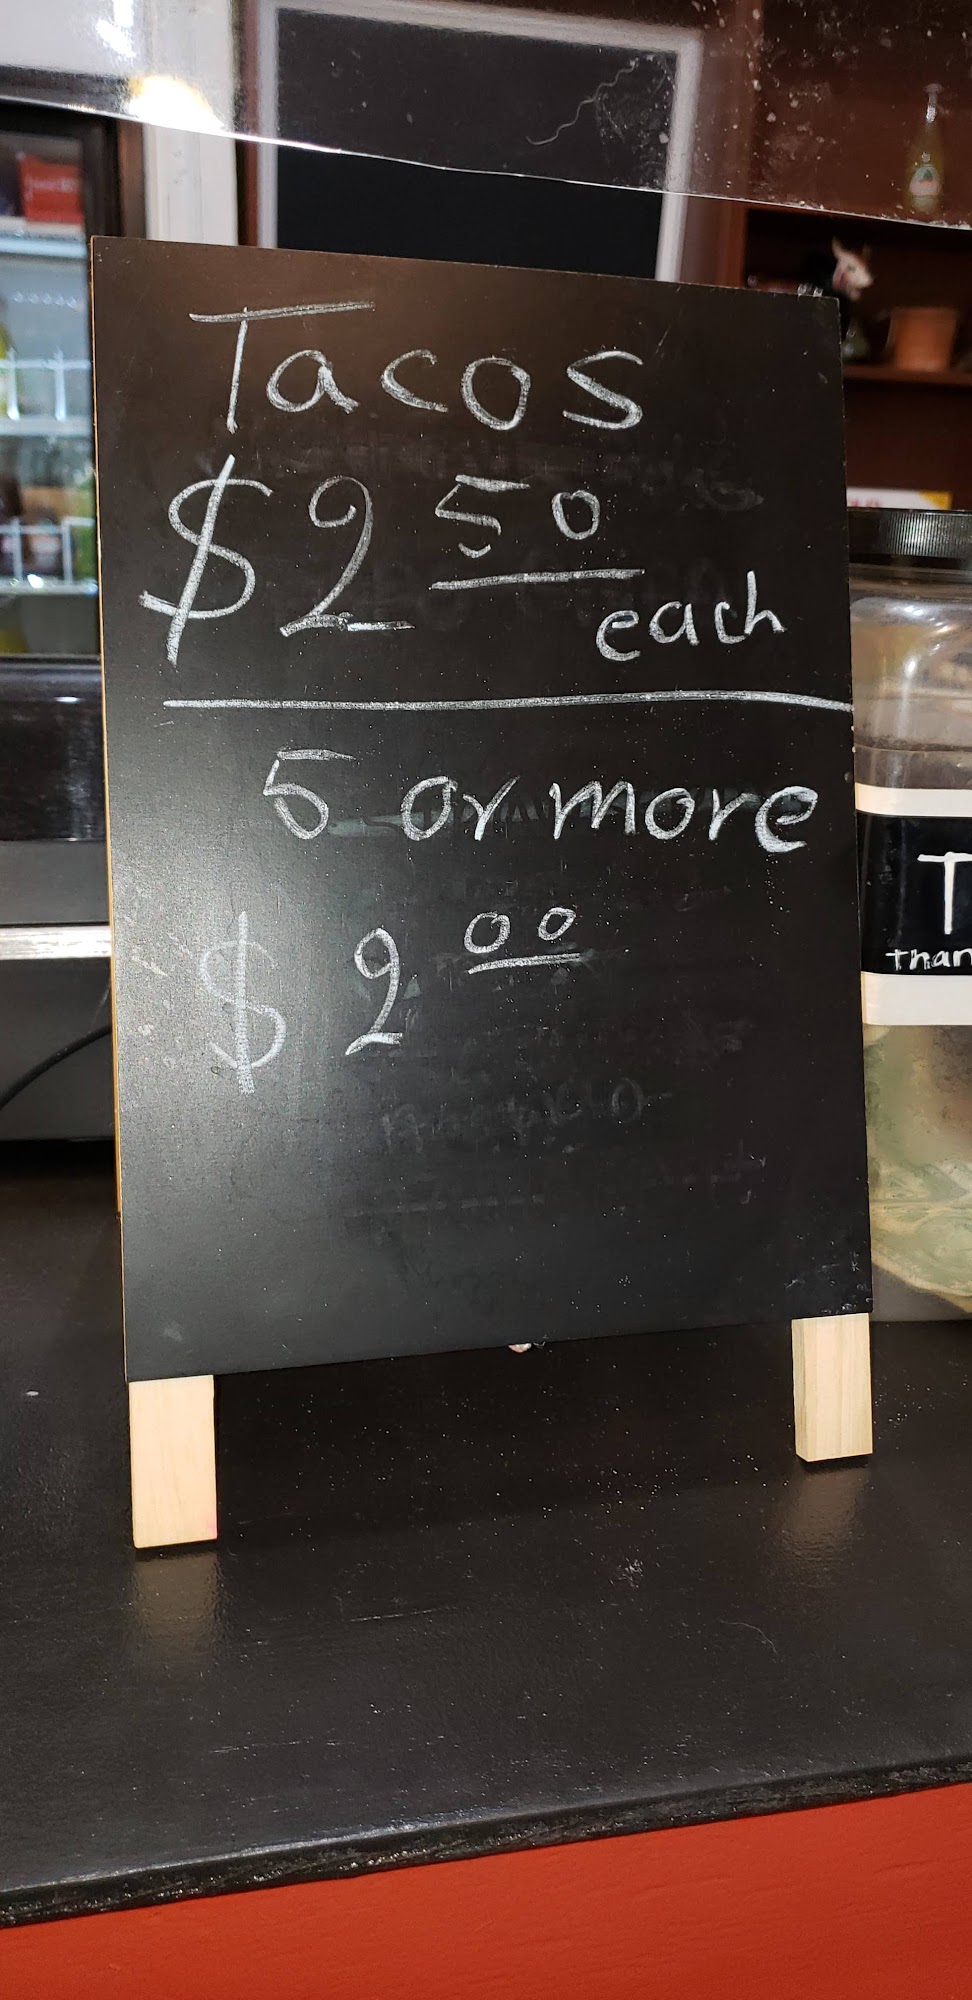 Tacos
$2 50
each
5 or more
$2 00
T
than